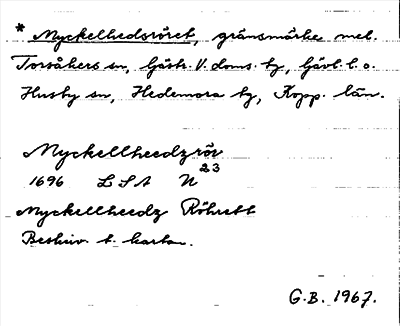 * Myckelhedsröret, gränsmärke mel.
Torsåkers sn, Gästr. V. doms. tg, Gävl. l. o.
Husby sn, Hedemora tg, Kopp. län.
Myckellheedz röv
1696 LSA N 23
Myckellheedz Röhrett
Beskriv. t. kartan.
G.B. 1967.